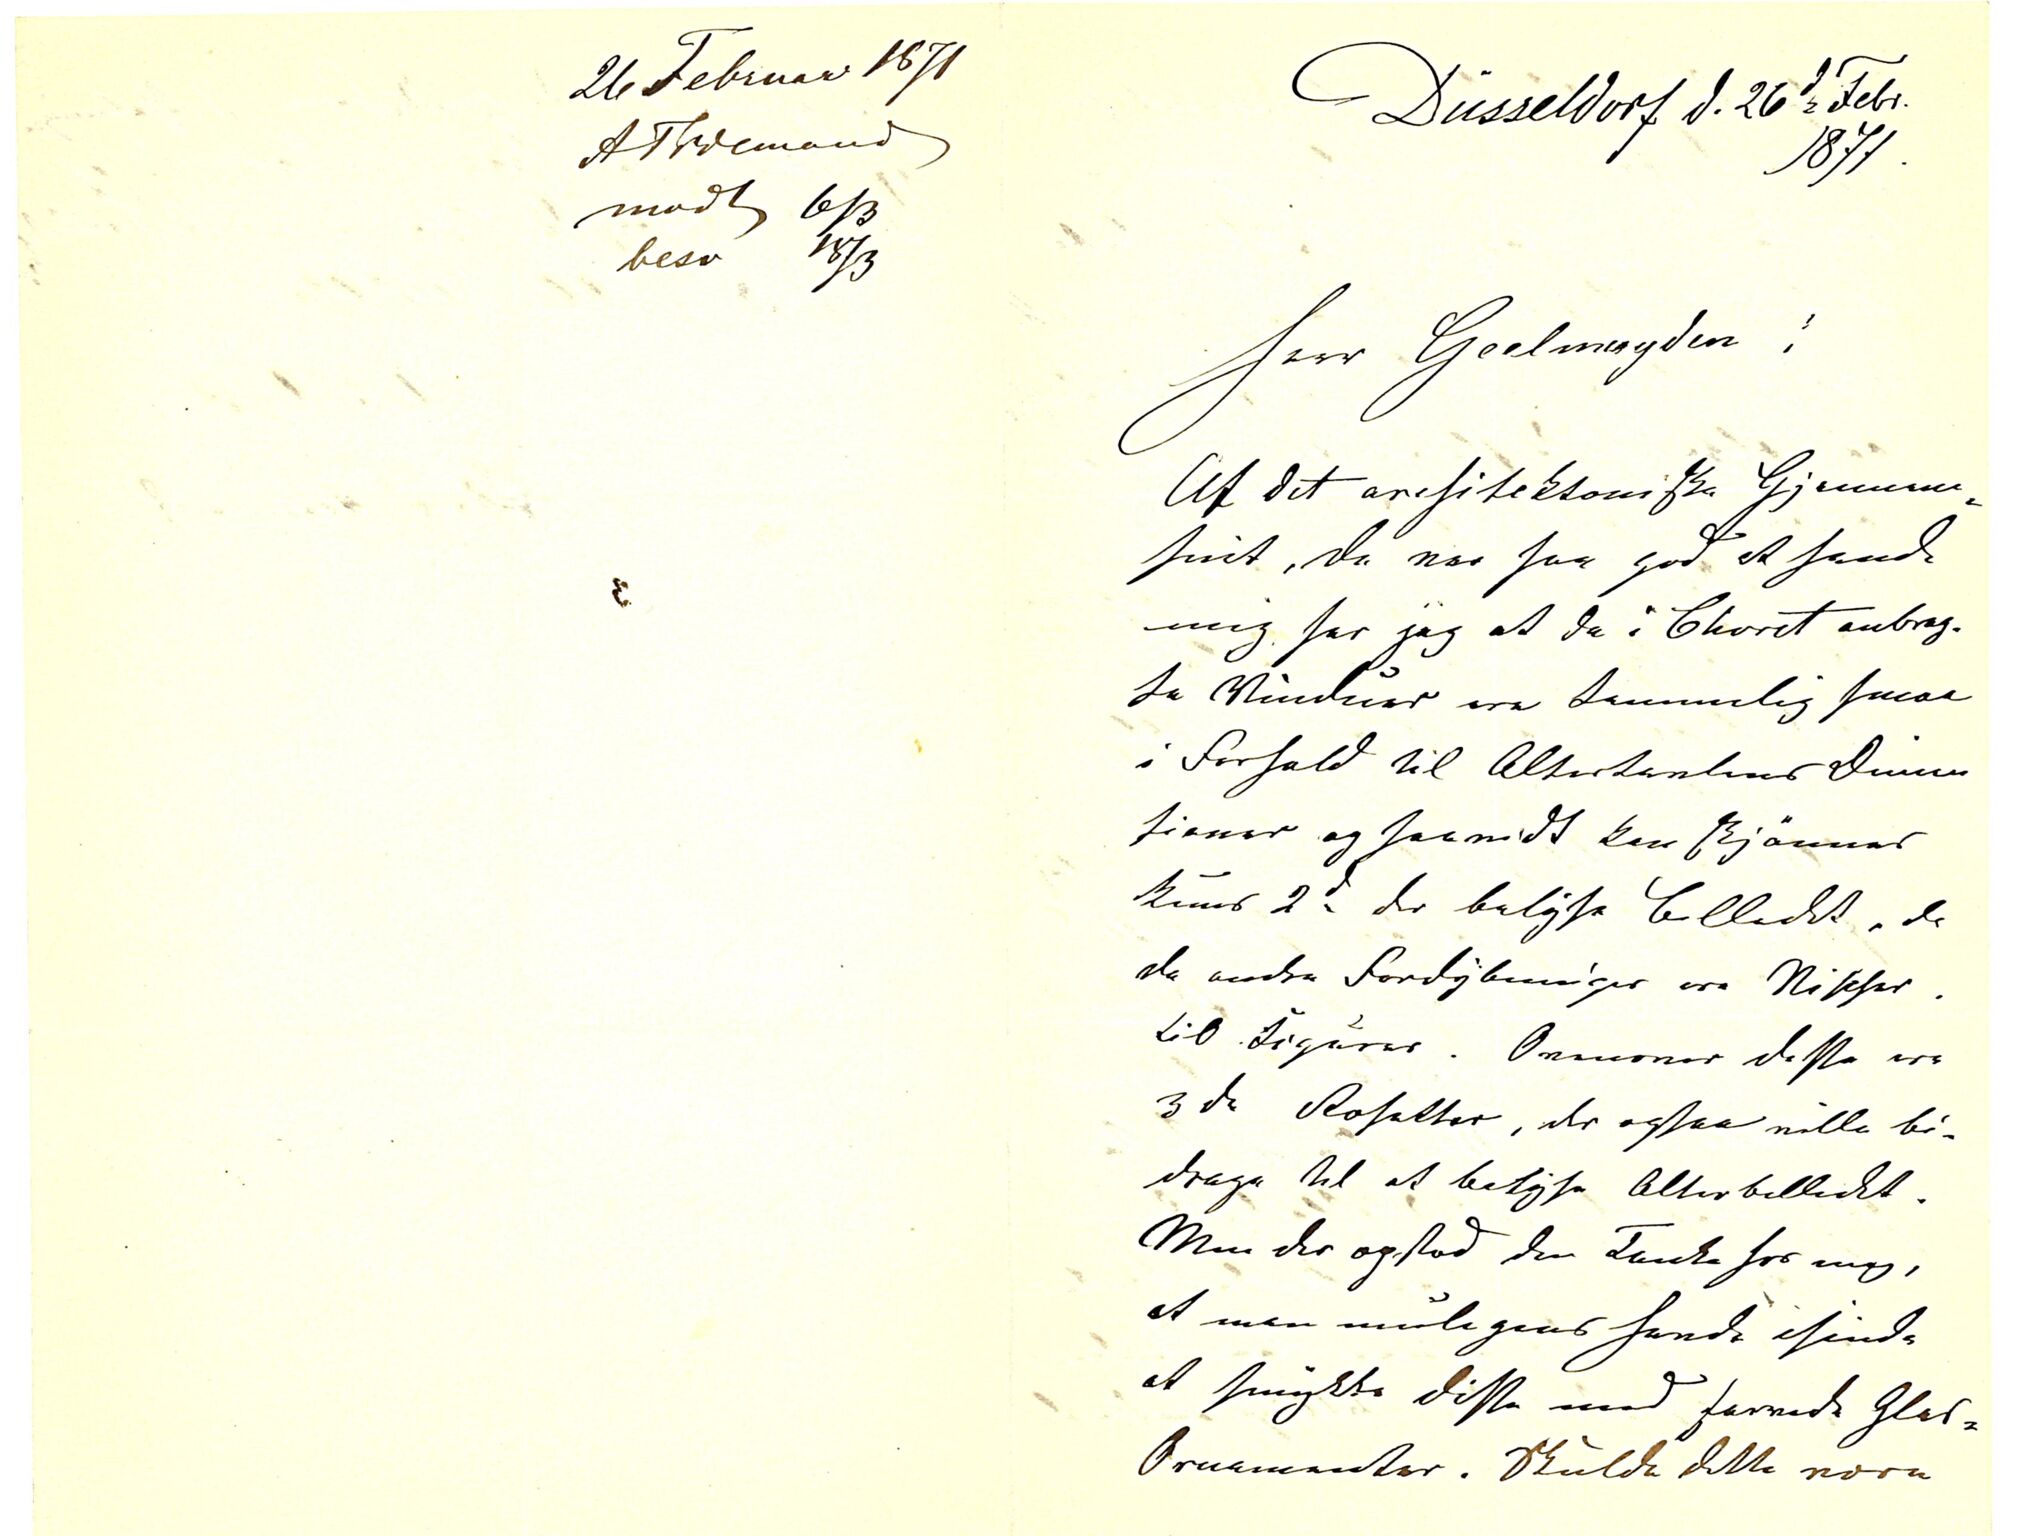 26 Februar 1871
A Tidemand
modt 6/3
besv 18/3
3
Düsseldorf d. 26de Febr.
1871.
Herr Geelmuyden!
Af det architektoniske Gjennem-
snit, De var saa god at sende
mig ser jeg at de i Choret anbrag-
te Vinduer ere temmelig smaa
i Forhold til Altertavlens Dimen
sioner og saavidt kan skjönnes
kuns 2de der belyse Billedet, da
de andre Fordybninger ere Nischer
til Figurer. Ovenover disse ere
3de Rosetter, der ogsaa ville bi-
drage til at belyse Alterbilledet.
Men der opstod den Tanke hos mig,
at man muligens havde isinde
at smykke disse med farvede Glas-
Ornamenter. Skulde dette være